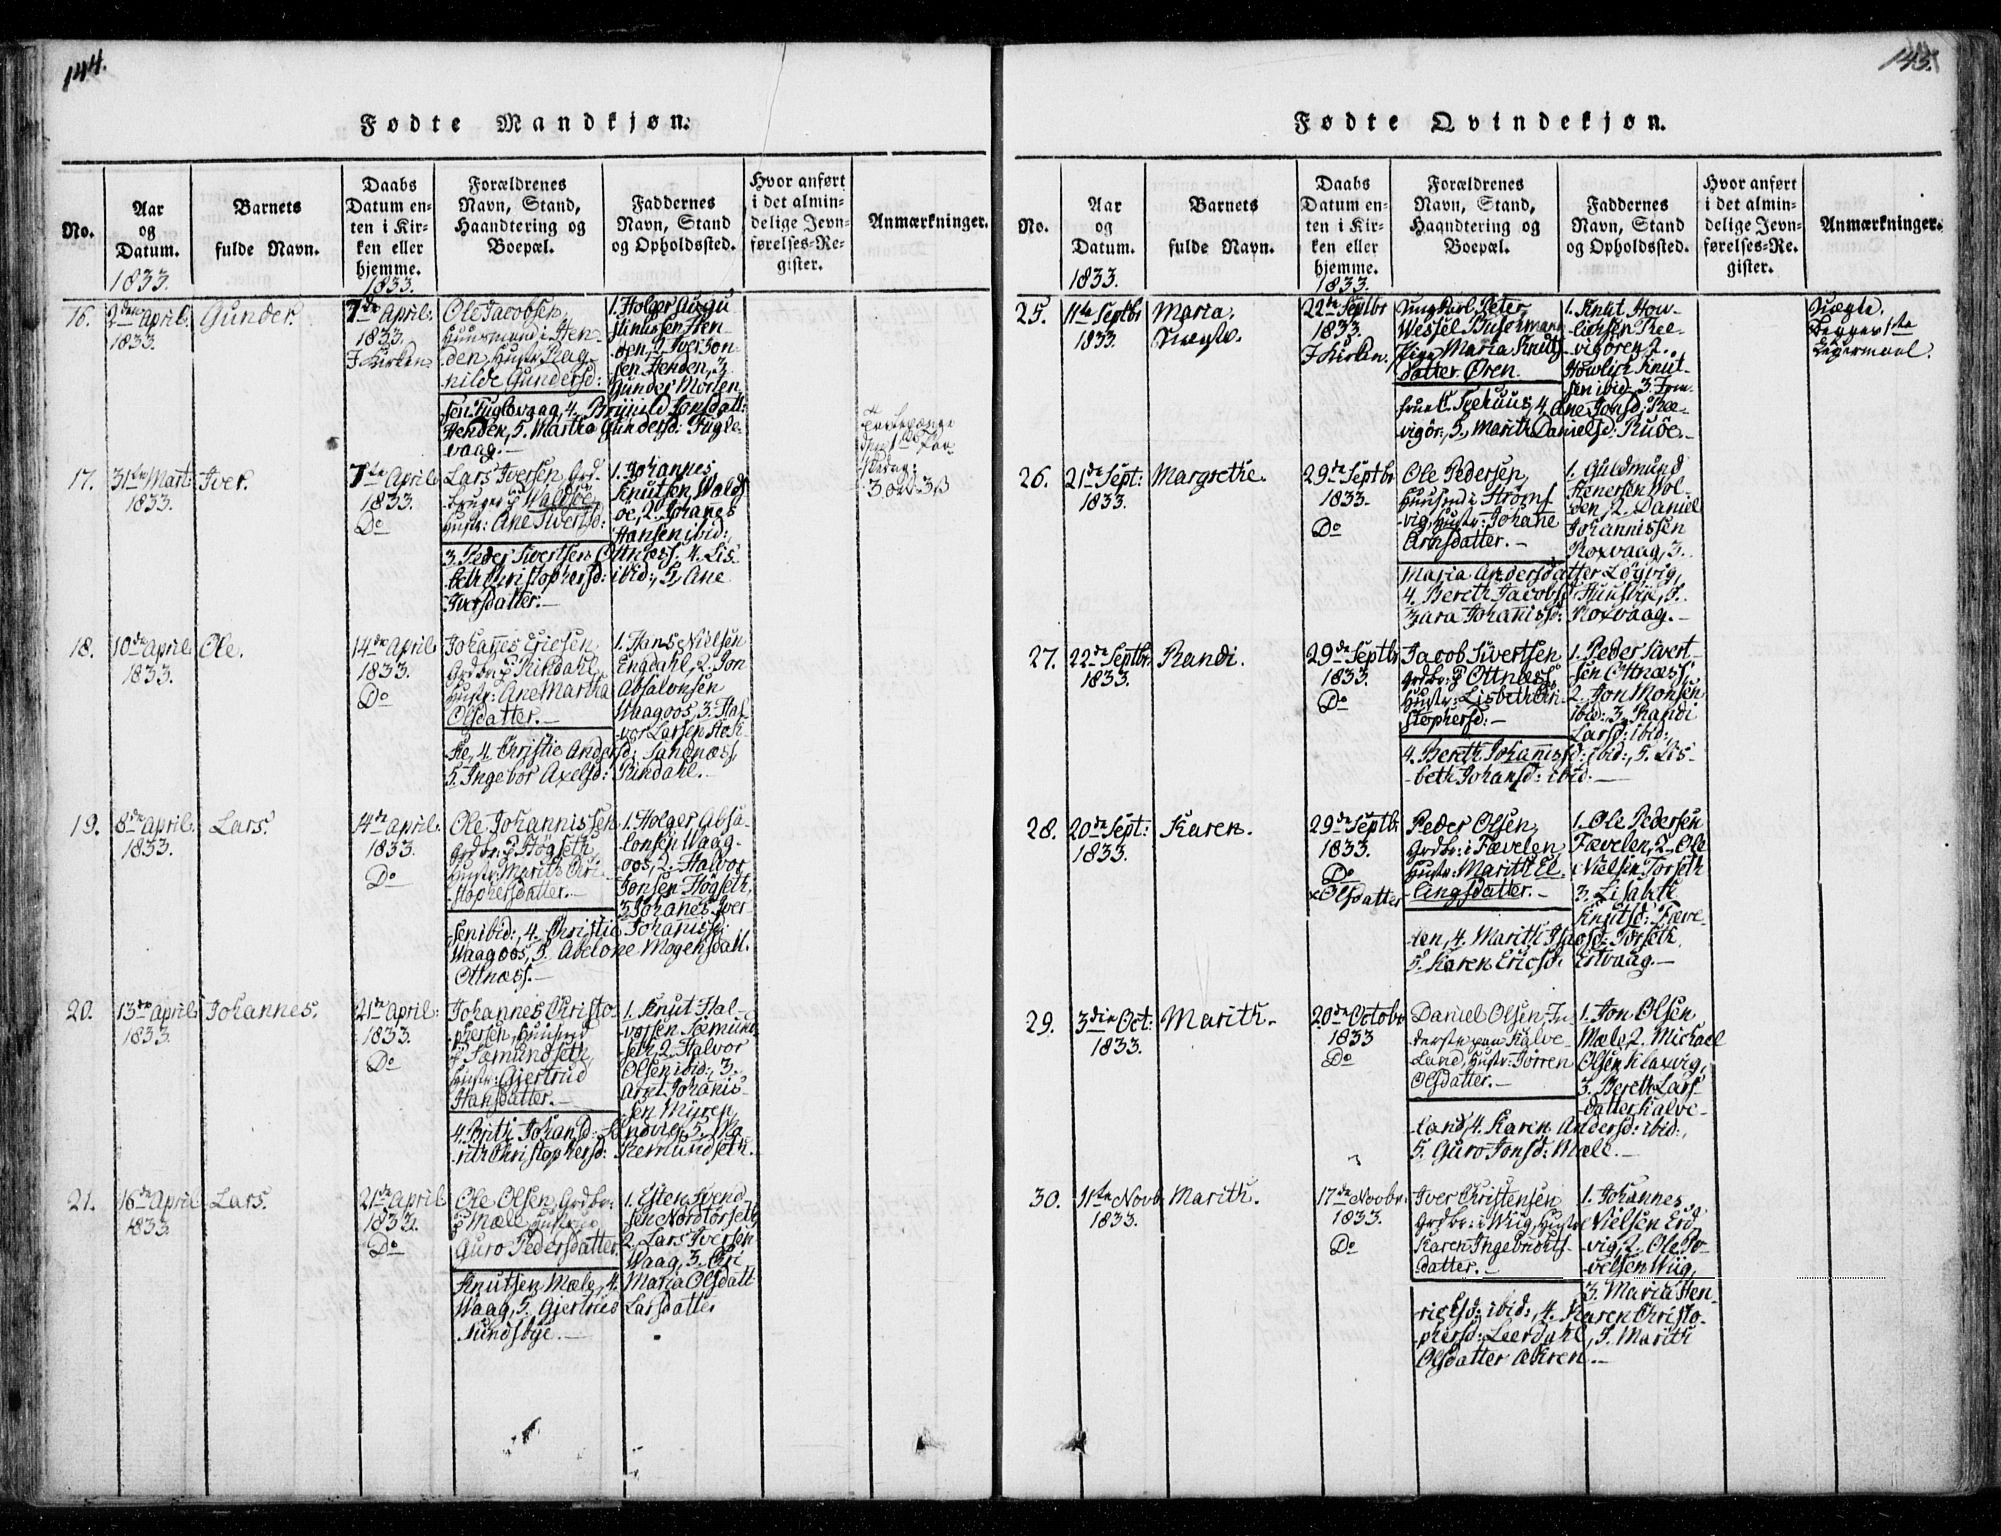 144.
Fødte Mandkjøn.
No.
Aar
og
Datum.
1833.
Barnets
fulde Navn.
Daabs
Datum en-
ten i Kir-
ken eller
hjemme.
1833.
Forældrenes
Navn, Stand,
Haandtering og
Boepæl.
Faddernes
Navn, Stand
og Opholdssted.
Hvor anført
i det almin-
delige Jevn-
førelses-Re-
gister.
Anmærkninger.
16.
2den April
1833.
Gunder.
7de April:
1833.
I Kirken.
Ole Jacobsen,
Huusmand i Hen-
den, Hustr: Rag-
nilde Gundersd:
1. Holger Augu
stinussen Hen-
den, 2. Iver Jon-
sen Henden, 3.
Gunder Morten
sen Fuglevaag, 4. Brynild Jonsdatt:
Henden, 5. Martha Gundersd: Fugle-
vaag.-
17.
31te Mart:
1833.
Iver.
7de April
1833.
Do
Lars Iversen, Grd-
bruger Waldsöe,
Hustr: Ane Sivertsd:
1. Johannes
Knutsen Walds
öe, 2. Johanes
Hansen ibid:,
3. Peder Sivertsen Ottnæss. 4. Lis-
beth Christophersd: ibid:, 5, Ane
Iversdatter.-
30 ad 33
18.
10de April
1833.
Ole.
14de April
1833.
Do
Johanes Ericsen
Grdbr: Rindahl,
Hustr: Ane Martha
Olsdatter.-
1. Hans Nielsen
Engdahl, 2. Jon
Absalonsen
Waagoos, 3. Hal
vor Larsen Hok-
ke, 4. Christie Andersd: Sandnæss,
5. Ingebor Axelsd: Rindahl.-
19.
8de April.
1833.
Lars.
14de April.
1833.
Do
Ole Johannissen
Grdbr: Högseth,
Hustr: Marith Chri-
stophersdatter.-
1. Holger Absa-
lonsen Waag-
oos, 2. Halvor
Jonsen Högseth,
3. Johanes Iver-
sen ibid:, 4. Christie Johanisd:
Waagoos, 5. Abelone Mogensdatt.
Ottnæss.-
20.
13de April
1833.
Johannes.
21de April:
1833.
Do
Johannes Christo
phersen, Huusmd
Sæmundseth,
Hustr: Gjertrud
Hansdatter.-
1. Knut Hal-
vorsen Sæmund
seth, 2. Halvor
Olsen ibid:, 3.
Arnt Johanis-
sen Myren,
4. Brith Johansd: Sandvig, 5. Ma
rith Christophersd: Remundseth.
21.
16de April
1833.
Lars.
21de April
1833.
Do
Ole Olsen, Grdbr:
Mæle, Hustrue
Guro Pedersdatter.
1. Esten Svend-
sen Nordtorseth,
2. Lars Iversen
Waag, 3.
Knutsen Mæle, 4. Maria Olsdatt
Waag, 5. Gjertrud Larsdatter
Sundsbye.-
143.
Fødte Qvindekjøn.
No.
Aar
og
Datum.
1833.
Barnets
fulde Navn.
Daabs
Datum en-
ten i Kir-
ken eller
hjemme.
1833.
Forældrenes
Navn, Stand,
Haandtering og
Boepæl.
Faddernes
Navn, Stand
og Opholdssted.
Hvor anført
i det almin-
delige Jevn-
førelses-Re-
gister.
Anmærkninger.
25.
11te Septbr
1833.
Maria,
Uægte.
22de Septbr
1833.
I Kirken.
Ungkarl Peter
Wessel Busermann
Pige Maria Knuts-
datter Ören.
1. Knut How-
lichsen Ree-
vigören, 2.
Howlich Knut-
sen ibid: 3. Jom-
frue Seehuus, 4. Ane Jonsd: Ree-
vigör., 5. Marith Danielsd: Ruöe.-
Uægte.
Begges 1ste
Leiermaal.
26.
21de Sept:
1833.
Margrethe.
29de Septbr
1833.
Do
Ole Pedersen,
Huusmd i Ströms-
vig, Hustr: Johane
Arnsdatter.-
1. Guldmund
Stenersen Vol-
den, 2. Daniel
Johannissen
Roxvaag, 3.
Maria Andersdatter Lögvig,
4. Bereth Jacobsd Hunsvig, 5.
Zara Johanisd: Roxvaag.-
27.
22de Septbr.
1833.
Randi.
29de Septbr
1833.
Do
Jacob Sivertsen
Grdbr: Ottnæss,
Hustr: Lisbeth Chri-
stophersd:-
1. Peder Sivert-
sen Ottnæss,
2. Jon Monsen
ibid: 3. Randi
Larsd: ibid:,
4. Bereth Johanisd: ibid:, 5. Lis-
beth Johansd: ibid:-
28.
20de Sept:
1833.
Karen.
29de Septbr
1833.
Do
x Olsdatter
Peder Olsen,
Grdbr: i Fævelen,
Hustr: Marith El-
lingsdatter.-
1. Ole Pedersen
Fævelen, 2. Ole
Nielsen Torseth
3. Lisabeth
Knutsd: Fæve-
len, 4. Marith Torseth,
5. Karen Ericsd: Ertvaag.-
29.
3die Oct:
1833.
Marith.
20de Octobr
1833
Do
Daniel Olsen, In-
derste paa Kalve-
Land, Hustr: Torren
Olsdatter.-
1. Jon Olsen
Mæle, 2. Michael
Olsen Klaxvig,
3. Bereth Lars-
datter Kalve-
land, 4. Karen Andersd: ibid:,
5. Guro Jonsd: Mæle.-
30.
11te Novb
1833.
Marith.
17de Novbr:
1833.
Do
Iver Christensen,
Grdbr: i Wiig, Hustr
Karen Ingebrichts-
datter.-
1. Johannes
Nielsen Erd-
vig, 2. Ole Po-
velsen Wiig,
3. Maria Hen-
ricsd: ibid:, 4. Karen Christo-
phersd: Leerdahl, 5. Marith
Olsdatter Aakren.-